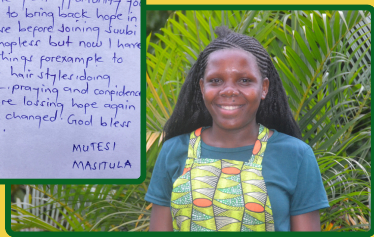 to bring back hope in
se before joining suubi
hopless but now I have
things forexample to
hair styles, doing
praying and confidence
re lossing hope again
changed. God bless
MUTESI
MASITULA